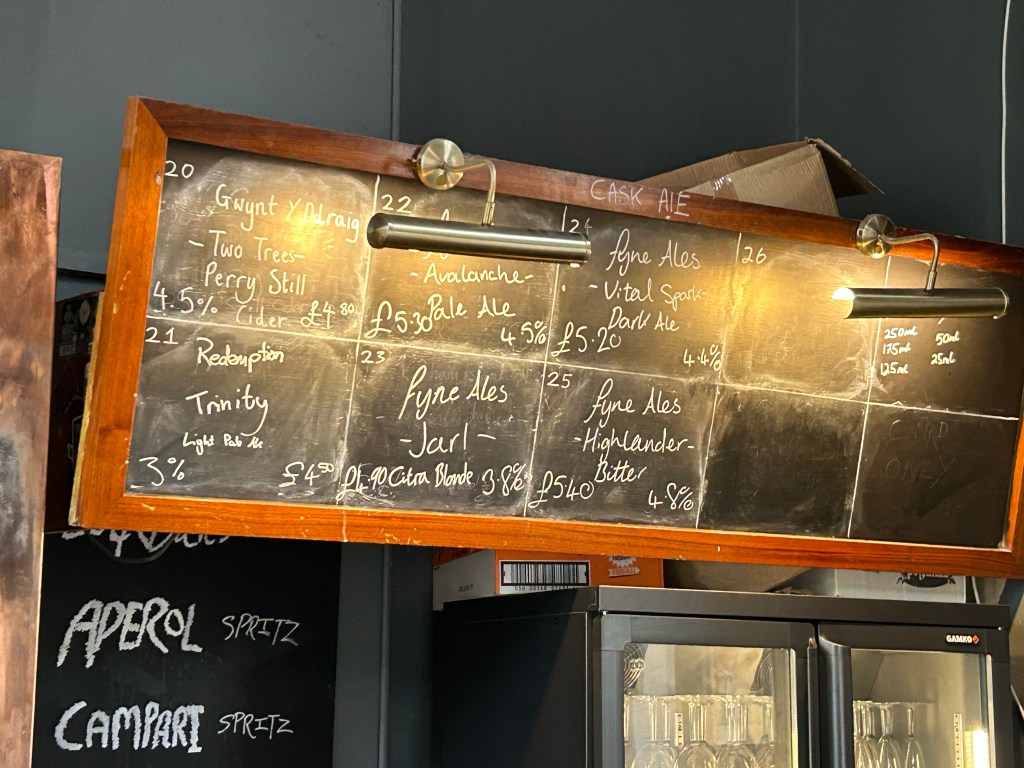 CASK ALE
20
Gwynt Y Ddraig
- Two Trees -
Perry Still
4.5% Cider £4.80
21
Redemption
Trinity
Light Pale Ale
3% £4.50
22
- Avalanche -
Pale Ale
£5.30 4.5%
23
Fyne Ales
- Jarl -
£4.90 Citra Blonde 3.8%
24
Fyne Ales
- Vital Spark -
Dark Ale
£5.20 4.4%
25
Fyne Ales
- Highlander -
Bitter
£5.40 4.8%
26
250ml 50ml
175ml 25ml
125ml
CARD
ONLY
APEROL SPRITZ
CAMPARI SPRITZ
GAMKO